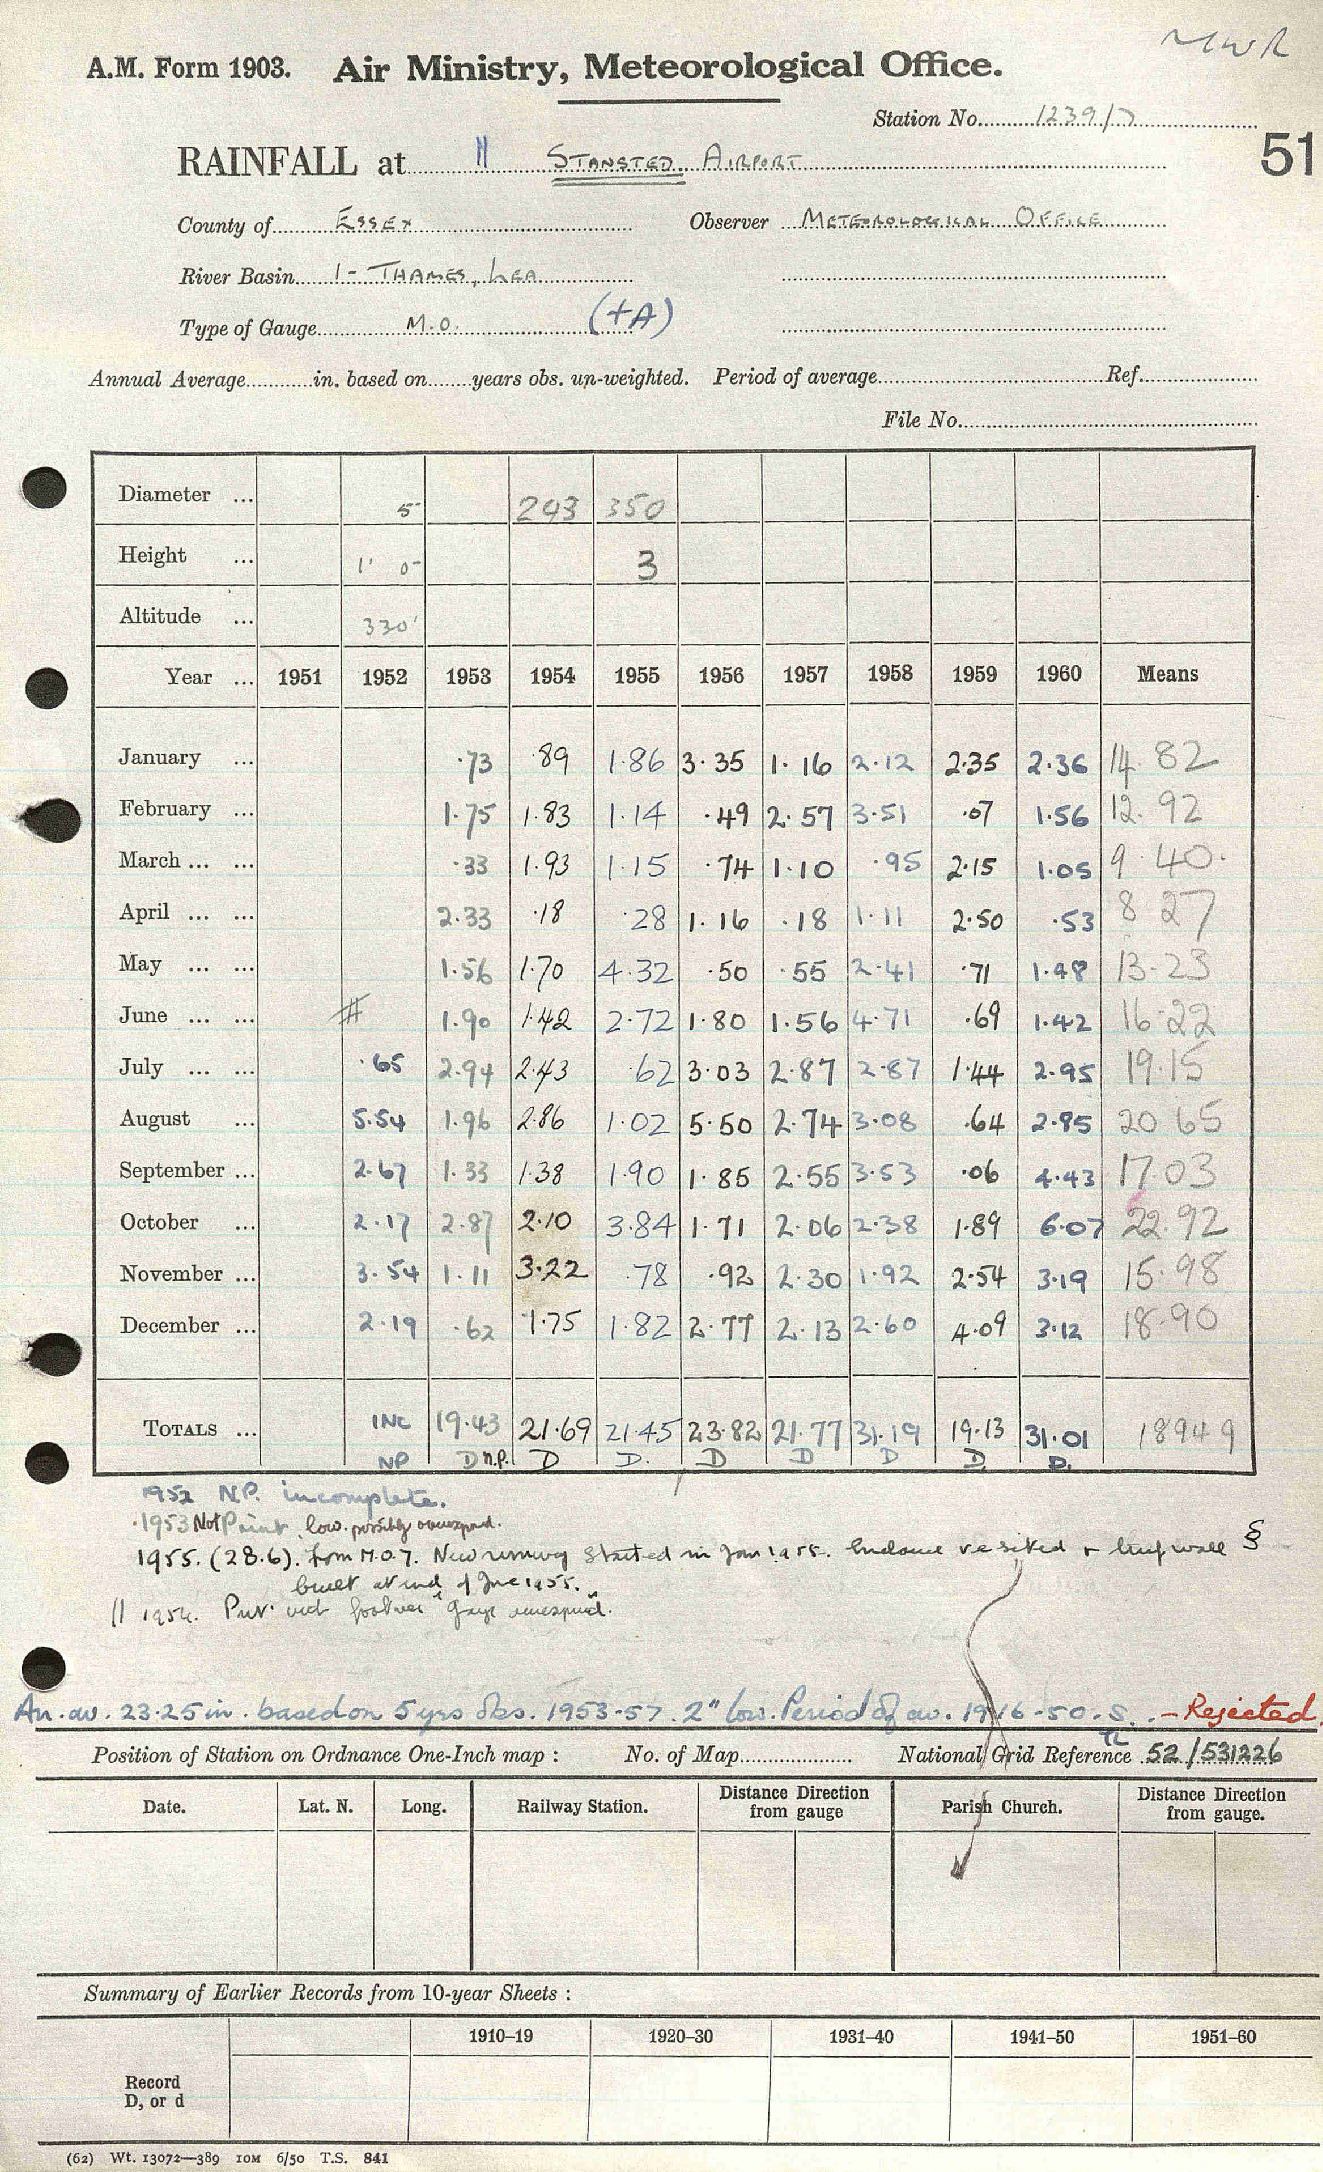 MWR
A.M. Form 1903. Air Ministry, Meteorological Office.
Station No. 1239/7
51
RAINFALL at || STANSTED AIRPORT
County of ESSEX Observer METEOROLOGICAL OFFICE
River Basin 1 - THAMES, LEA
Type of Gauge M.O. (+A)
Annual Average in. based on years obs. un-weighted. Period of average Ref.
File No.
Diameter ... 5" 243 350
Height ... 1' 0" 3
Altitude ... 330'
Year ... 1951 1952 1953 1954 1955 1956 1957 1958 1959 1960 Means
January ... ·73 ·89 1·86 3·35 1·16 2·12 2·35 2·36 14·82
February ... 1·75 1·83 1·14 ·49 2·57 3·51 ·07 1·56 12·92
March ... ... ·33 1·93 1·15 ·74 1·10 ·95 2·15 1·05 9·40
April ... ... 2·33 ·18 ·28 1·16 ·18 1·11 2·50 ·53 8·27
May ... ... 1·56 1·70 4·32 ·50 ·55 2·41 ·71 1·48 13·23
June ... ... # 1·90 1·42 2·72 1·80 1·56 4·71 ·69 1·42 16·22
July ... ... ·65 2·94 2·43 ·62 3·03 2·87 2·87 1·44 2·95 19·15
August ... 5·54 1·96 2·86 1·02 5·50 2·74 3·08 ·64 2·85 20 65
September ... 2·67 1·33 1·38 1·90 1·85 2·55 3·53 ·06 4·43 17·03
October ... 2·17 2·87 2·10 3·84 1·71 2·06 2·38 1·89 6·07 22·92
November ... 3·54 1·11 3·22 ·78 ·92 2·30 1·92 2·54 3·19 15·98
December ... 2·19 ·62 1·75 1·82 2·77 2·13 2·60 4·09 3·12 18·90
TOTALS ... INC 19·43 21·69 21·45 23·82 21·77 31·19 19·13 31·01 18949
NP D n.p. D D. D D D D. D.
1952 N.P. incomplete.
1953 Not Print low. possibly overexposed.
1955. (28.6). from M.O.7. New runway started in Jan 1955. Enclosure re sited + turf wall §
built at end of June 1955.
|| 1954. Put footnote "gauge overexposed".
An. av. 23·25 in. based on 5 yrs obs. 1953-57. 2" low. Period of av. 1916-50. S. - Rejected.
Position of Station on Ordnance One-Inch map : No. of Map National Grid Reference TL 52/531226
Date. Lat. N. Long. Railway Station. Distance from gauge Direction Parish Church. Distance Direction from gauge.
Summary of Earlier Records from 10-year Sheets :
1910–19 1920–30 1931–40 1941–50 1951–60
Record
D, or d
(62) Wt. 13072—389 10M 6/50 T.S. 841